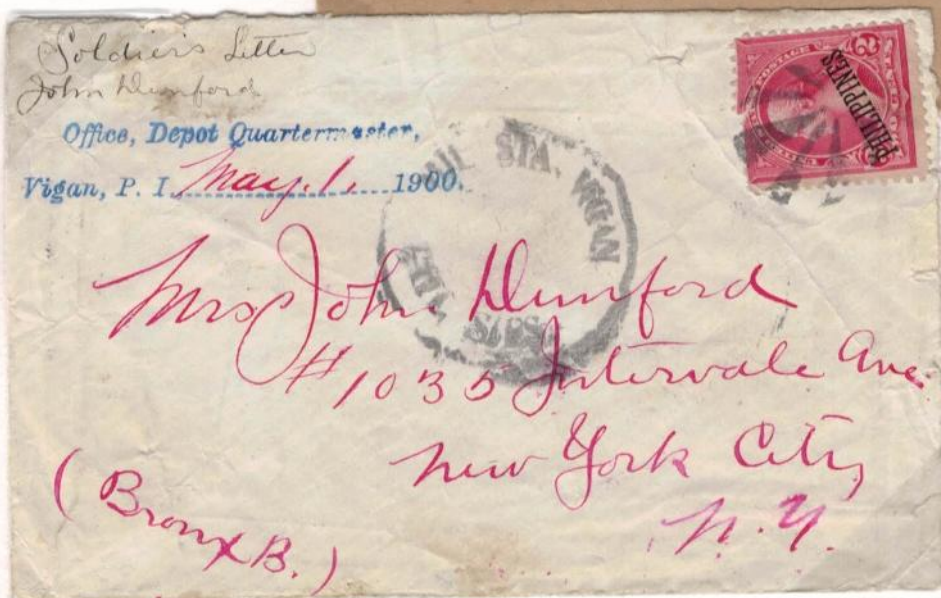 Soldier's Letter
John Dunford
Office, Depot Quartermaster,
Vigan, P. I. May. 1. 1900.
PHILIPPINES
2 2
POSTAGE
MIL. STA. VIGAN
Mrs John Dunford
# 1035 Intervale Ave.
New York City
N.Y.
(Bronx B.)